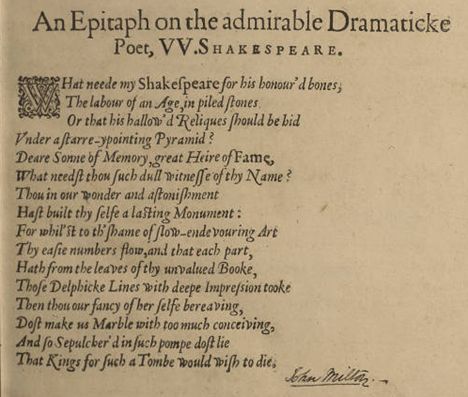 An Epitaph on the admirable Dramaticke
Poet, VV. SHAKESPEARE.
WHat neede my Shakeſpeare for his honour'd bones,
The labour of an Age, in piled ſtones
Or that his hallow'd Reliques ſhould be hid
Vnder a ſtarre-ypointing Pyramid?
Deare Sonne of Memory, great Heire of Fame,
What needſt thou ſuch dull witneſſe of thy Name?
Thou in our wonder and aſtoniſhment
Haſt built thy ſelfe a laſting Monument:
For whil'ſt to th'ſhame of ſlow-endevouring Art
Thy eaſie numbers flow, and that each part,
Hath from the leaves of thy unvalued Booke,
Thoſe Delphicke Lines with deepe Impreſsion tooke
Then thou our fancy of her ſelfe bereaving,
Doſt make us Marble with too much conceiving,
And ſo Sepulcher'd in ſuch pompe doſt lie
That Kings for ſuch a Tombe would wiſh to die.
John Milton.